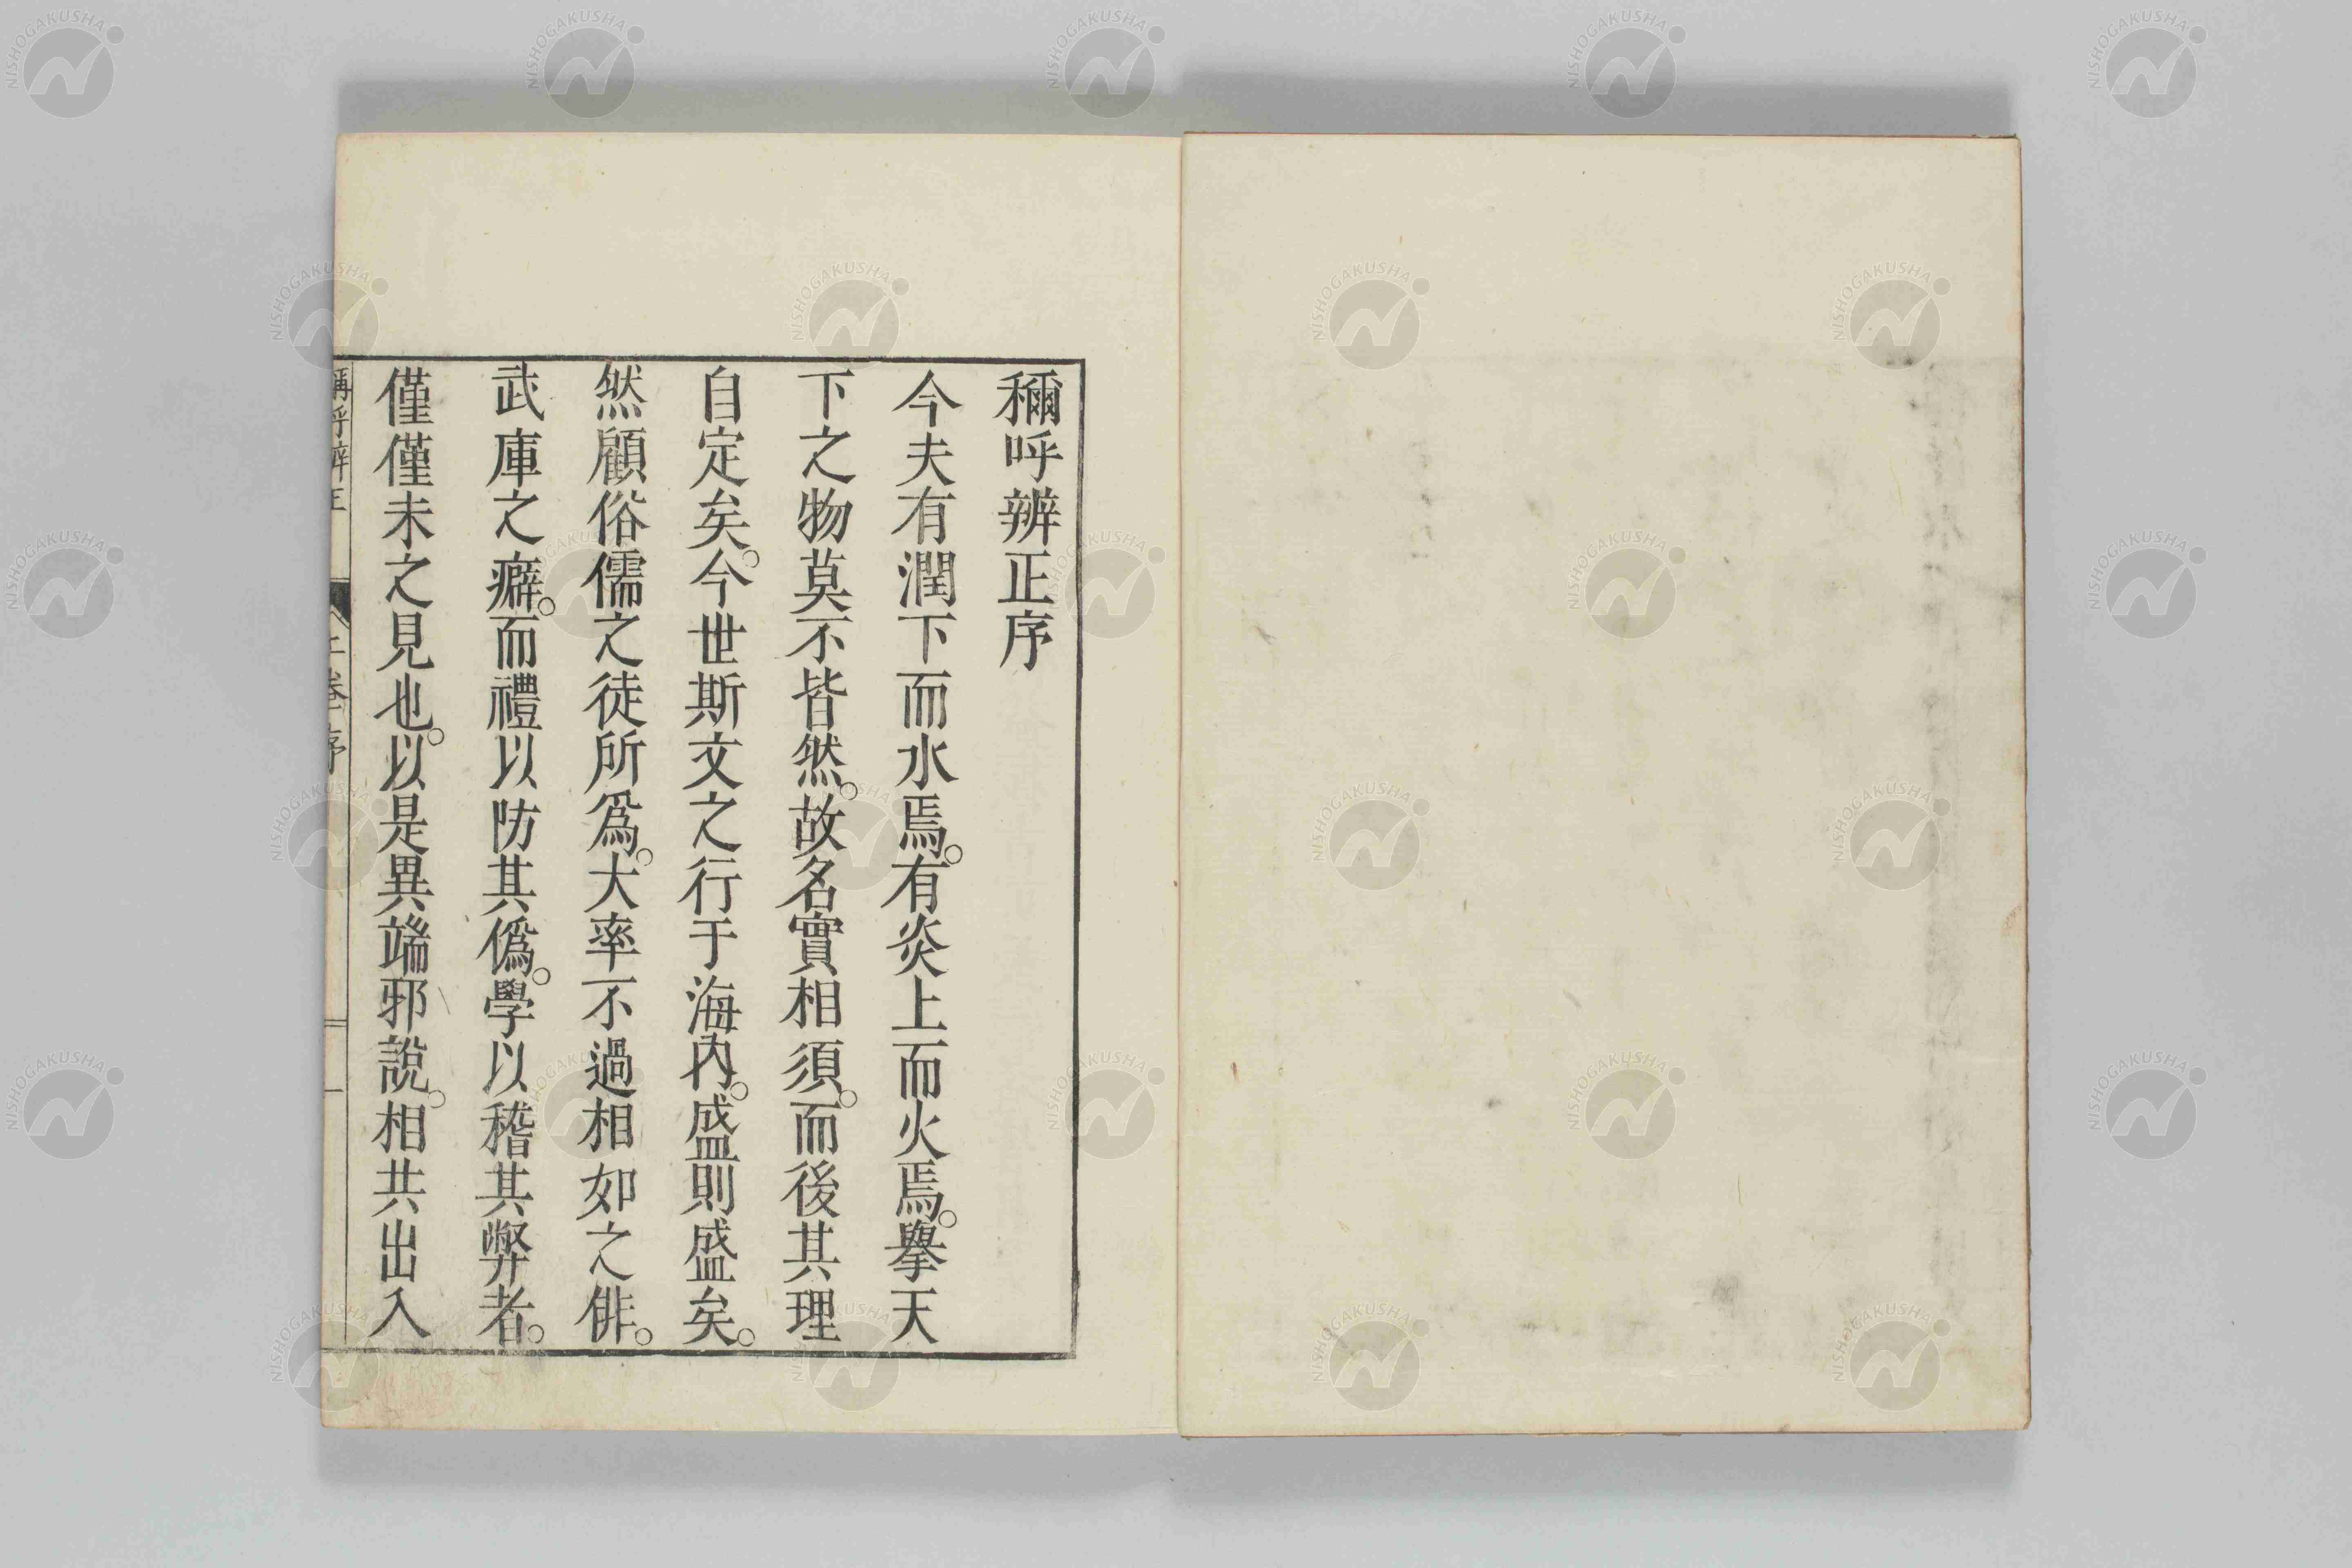 稱呼辨正序
今夫有潤下而水焉。有炎上而火焉。擧天
下之物莫不皆然。故名實相須。而後其理
自定矣。今世斯文之行于海內。盛則盛矣。
然顧俗儒之徒所爲。大率不過相如之俳。
武庫之癖。而禮以防其僞。學以稽其弊者。
僅僅未之見也。以是異端邪說。相共出入
稱呼辨正 上卷 序 一
NISHOGAKUSHA